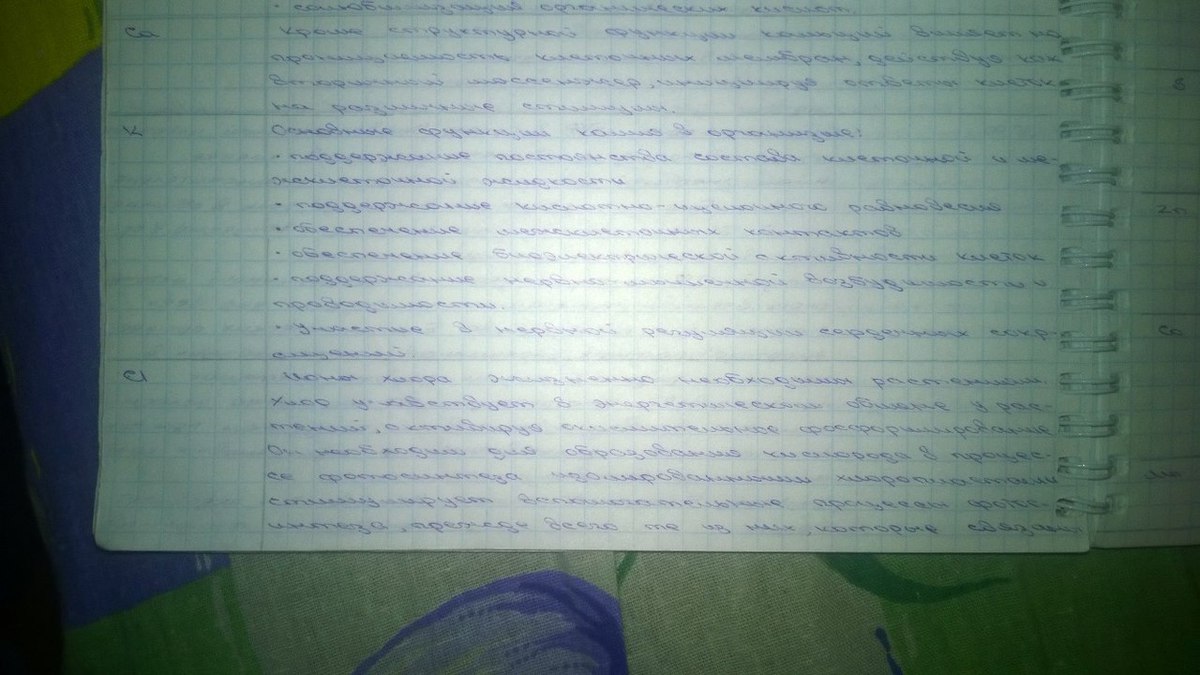 • солюбилизация органических кислот
Ca Кроме структурной функции кальций влияет на
проницаемость клеточных мембран, действуя как
вторичный мессенджер, инициируя ответы клеток
на различные стимулы.
K Основные функции калия в организме:
• поддержание постоянства состава клеточной и ме-
жклеточной жидкости
• поддержание кислотно-щелочного равновесия
• обеспечение межклеточных контактов
• обеспечение биоэлектрической активности клеток
• поддержание нервно-мышечной возбудимости и
проводимости.
• участие в нервной регуляции сердечных сокр-
ащений.
Cl Ионы хлора жизненно необходимы растениям.
Хлор участвует в энергетическом обмене у рас-
тений, активируя окислительное фосфорилирование
Он необходим для образования кислорода в процес-
се фотосинтеза изолированными хлоропластами
стимулирует вспомогательные процессы фотос-
интеза, прежде всего те из них, которые связан
Zn
Co
Mo